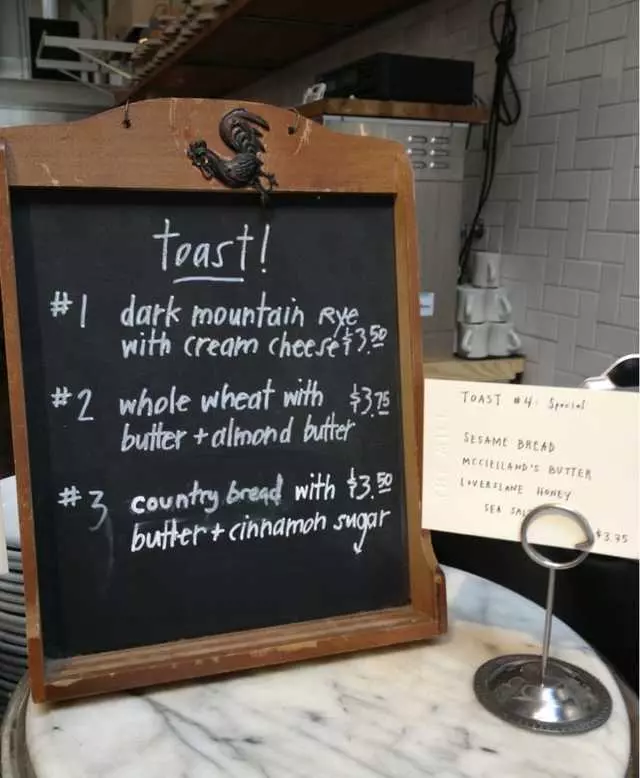 toast!
#1 dark mountain Rye
with cream cheese $3.50
#2 whole wheat with $3.75
butter + almond butter
#3 country bread with $3.50
butter + cinnamon sugar
TOAST #4: Special
SESAME BREAD
MCCLELLAND'S BUTTER
LOVERSLANE HONEY
SEA
$3.75